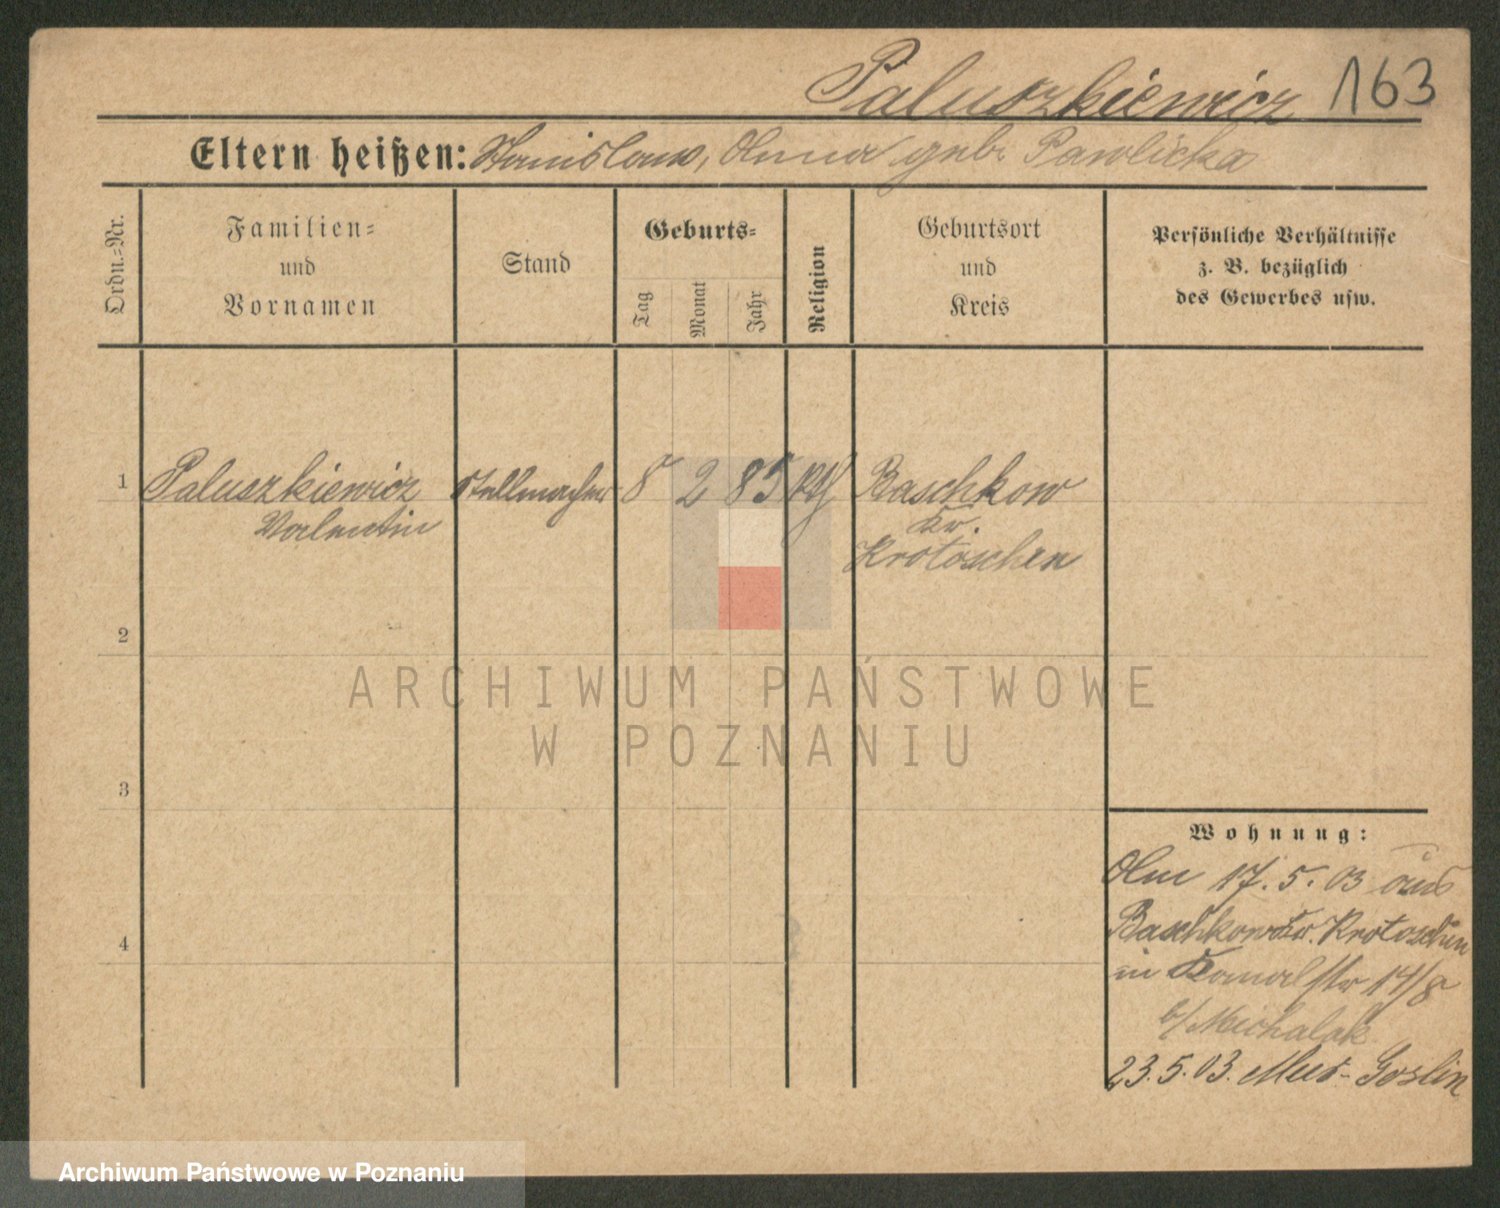 Paluszkiewicz 163
Eltern heißen: Stanislaus, Anna geb. Pawlicka
Ordn.-Nr.
Familien-
und
Vornamen
Stand
Geburts-
Tag
Monat
Jahr
Religion
Geburtsort
und
Kreis
Persönliche Verhältnisse
z. B. bezüglich
des Gewerbes usw.
1 Paluszkiewicz Stellmacher 8 2 85 Baschkow
Valentin Kr.
Krotoschen
2
ARCHIWUM PAŃSTWOWE
W POZNANIU
3
Wohnung:
Am 17. 5. 03 aus
Baschkow Kr. Krotoschen
4
in Kanalstr 14/8
b/ Michalak
23. 5. 03. Mur-Goslin
Archiwum Państwowe w Poznaniu